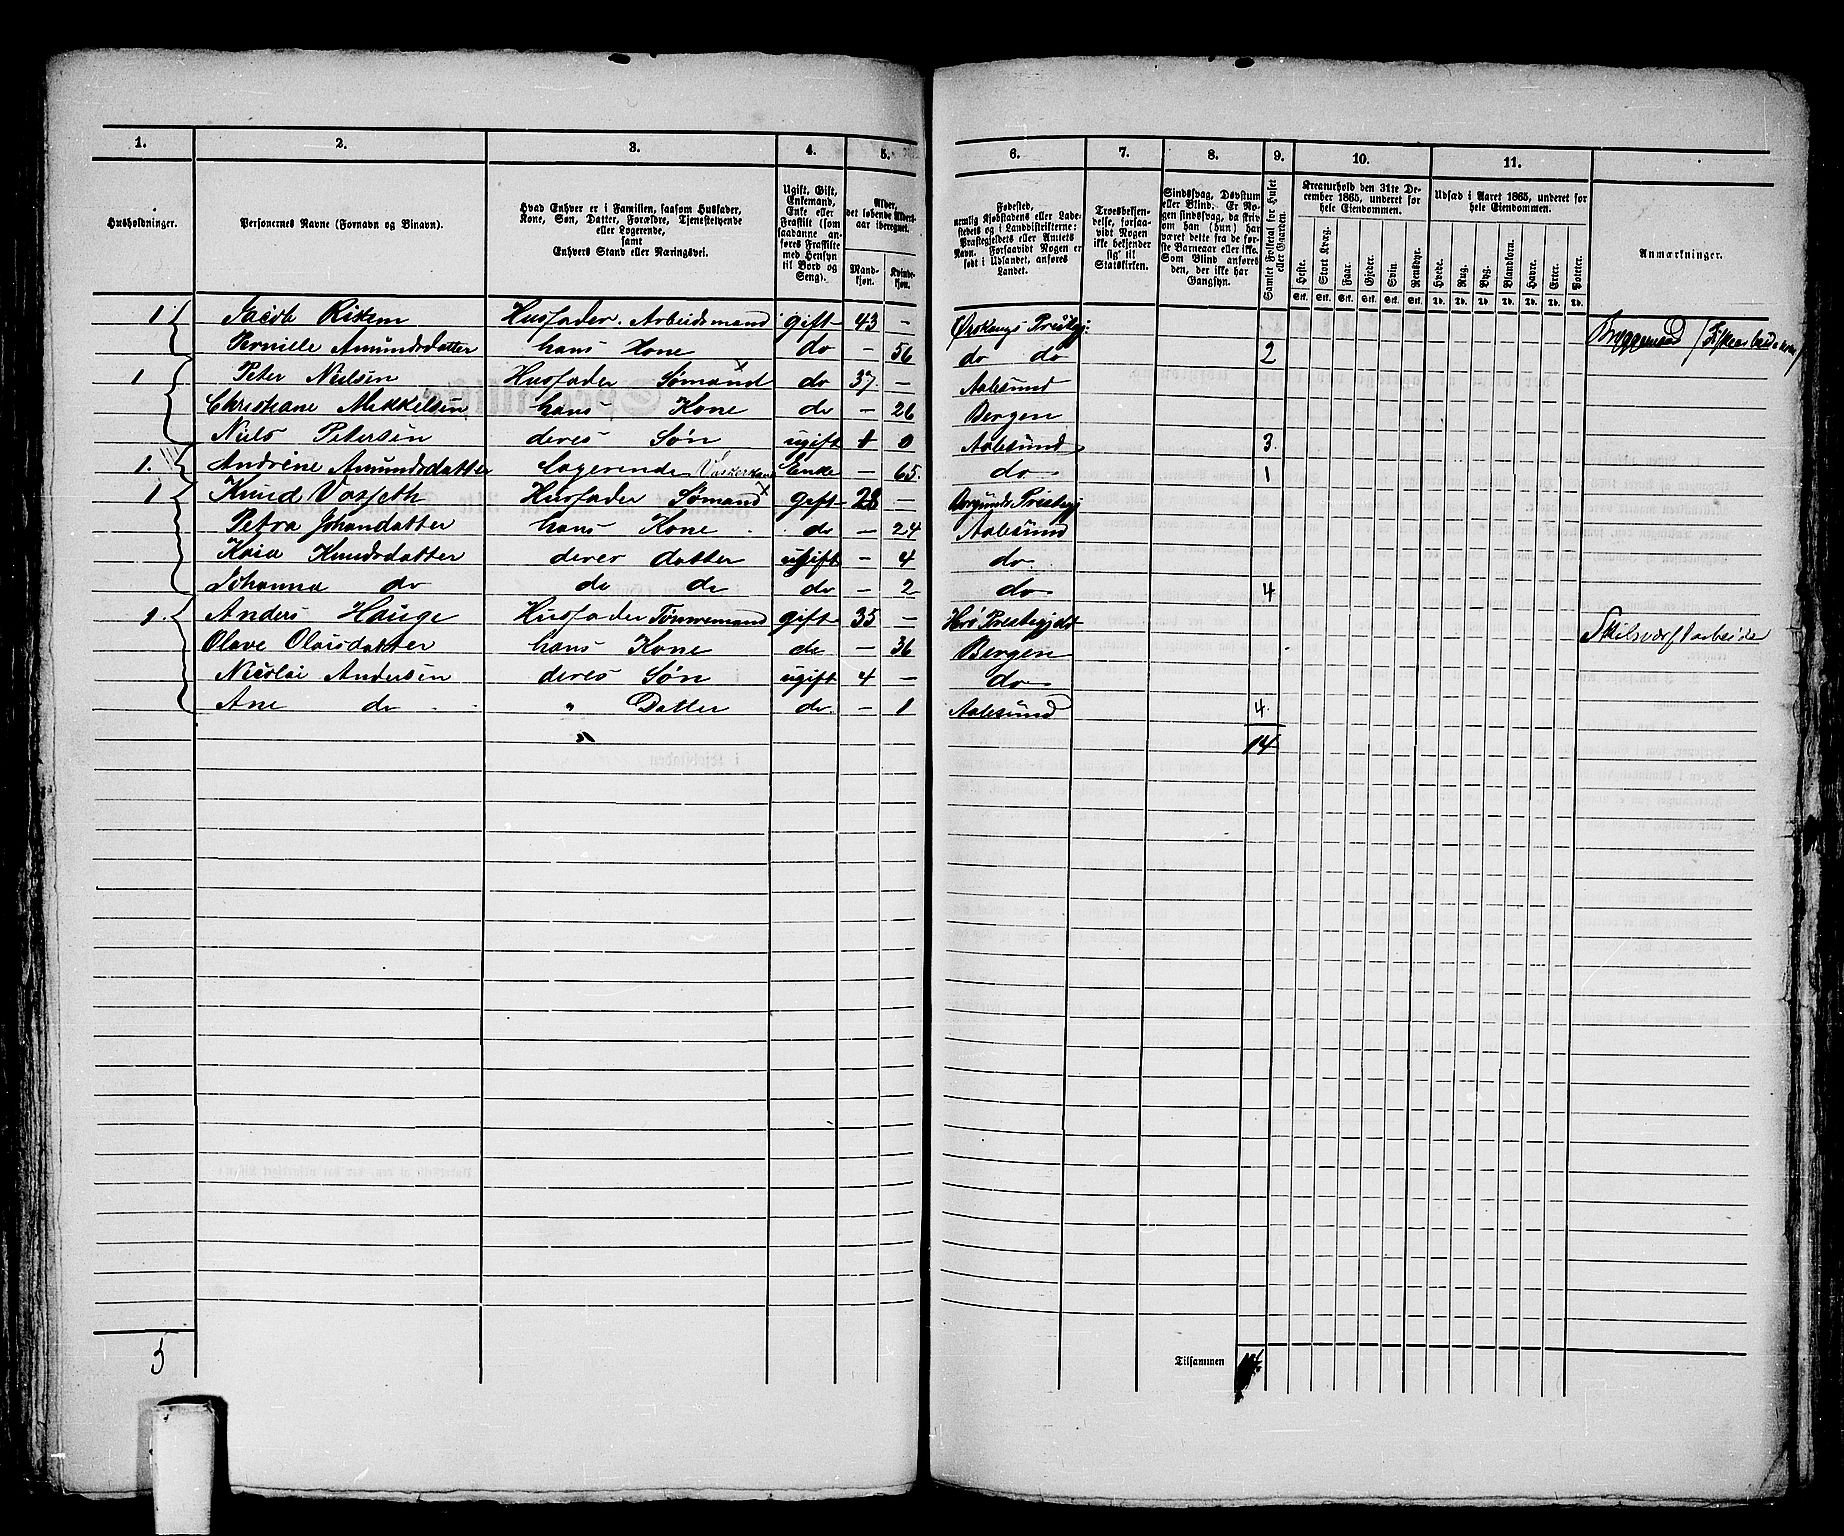 1. 2. 3. 4. 5. 6. 7. 8. 9. 10. 11.
Husholdninger.
Personernes Navne (Fornavn og Binavn).
Hvad Enhver er i Familien, saasom Husfader,
Kone, Søn, Datter, Forældre, Tjenestetyende
eller Logerende,
samt
Enhvers Stand eller Næringsvei.
Ugift, Gift,
Enkemand,
Enke eller
Fraskilt (som
saadanne an-
føres Fraskilte
med Hensyn
til Bord og
Seng).
Alder,
det løbende Alders-
aar iberegnet.
Mand-
kjøn.
Kvinde-
kjøn.
Fødested,
nemlig Kjøbstadens eller Lade-
stedets og i Landdistrikterne:
Præstegjeldets eller Amtets
Navn. Forsaavidt Nogen er
født i Udlandet, anføres
Landet.
Troesbekjen-
delse, forsaa-
vidt Nogen
ikke bekjender
sig til
Statskirken.
Sindssvag, Døvstum
eller Blind. Er No-
gen sindssvag, da skriv
om han (hun) har
været dette fra de før-
ste Barneaar eller ikke.
Som Blind anføres
den, der ikke har
Gangsyn.
Samlet Folketal for Huset
eller Gaarden.
Kreaturhold den 31te De-
cember 1865, underet for
hele Eiendommen.
Heste. Stort Kvæg. Faar. Gjeder. Svin. Rensdyr.
Stk. Stk. Stk. Stk. Stk. Stk.
Udsæd i Aaret 1865, underet for
hele Eiendommen.
Hvede. Rug. Byg. Blandkorn. Havre. Erter. Poteter.
Td. Td. Td. Td. Td. Td. Td.
Anmærkninger.
1 Jacob Rikem Husfader. Arbeidsmand gift 43 — Ørskougs Prestgj: Bryggemand
Pernille Amundsdatter hans Kone do — 56 do do 2
1 Peter Nielsen Husfader Sømand x do 37 — Aalesund
Christiane Mikkelsen hans Kone do — 26 Bergen
Niels Petersen deres Søn ugift 1 0 Aalesund 3
1. Andrine Amundsdatter Logerende Enke — 65. do 1
1 Knud Vasseth Husfader Sømand x gift 28 — Borgunds Prestegj
Petra Johandatter hans Kone do — 24 Aalesund
Kaia Knudsdatter deres datter ugift — 4 do
Johanna do do do do — 2 do 4
1. Anders Hauge Husfader Tønnemand gift 35 — Herø Prestegjeldt Skibsværftarbeide
Olave Olaisdatter hans Kone do — 36 Bergen
Nicolai Andersen deres Søn ugift 4 — do
Ane do " Datter do — 1 Aalesund 4.
14
5
Tilsammen